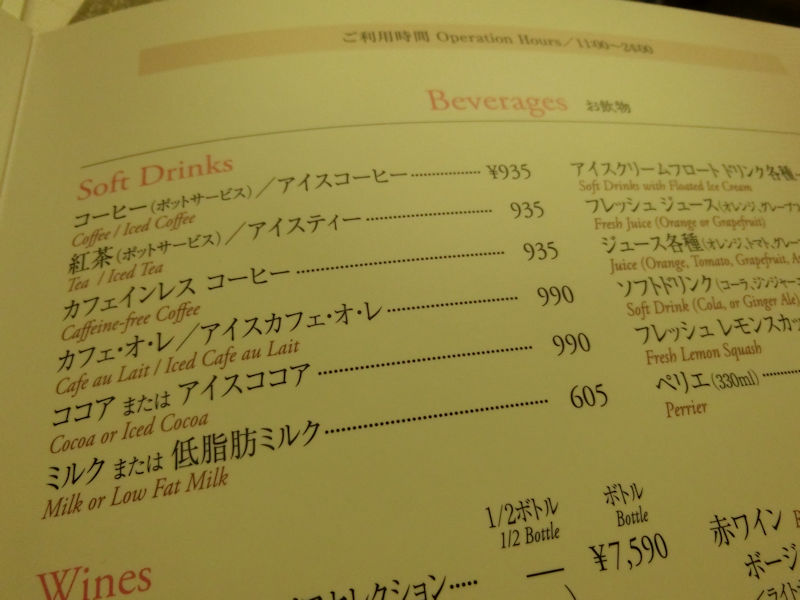 ご利用時間 Operation Hours／11:00〜24:00
Beverages お飲物
Soft Drinks
コーヒー(ポットサービス)／アイスコーヒー ¥935
Coffee / Iced Coffee
紅茶(ポットサービス)／アイスティー 935
Tea / Iced Tea
カフェインレス コーヒー 935
Caffeine-free Coffee
カフェ・オ・レ／アイスカフェ・オ・レ 990
Cafe au Lait / Iced Cafe au Lait
ココア または アイスココア 990
Cocoa or Iced Cocoa
ミルク または 低脂肪ミルク 605
Milk or Low Fat Milk
アイスクリームフロートドリンク各種
Soft Drinks with Floated Ice Cream
フレッシュジュース(オレンジ、グレープフ
Fresh Juice (Orange or Grapefruit)
ジュース各種(オレンジ、トマト、グレー
Juice (Orange, Tomato, Grapefruit,
ソフトドリンク(コーラ、ジンジャーエ
Soft Drink (Cola, or Ginger Ale)
フレッシュレモンスカッ
Fresh Lemon Squash
ペリエ(330ml)
Perrier
1/2ボトル ボトル
1/2 Bottle Bottle
Wines
セレクション ― ¥7,590
赤ワイン
ボージ